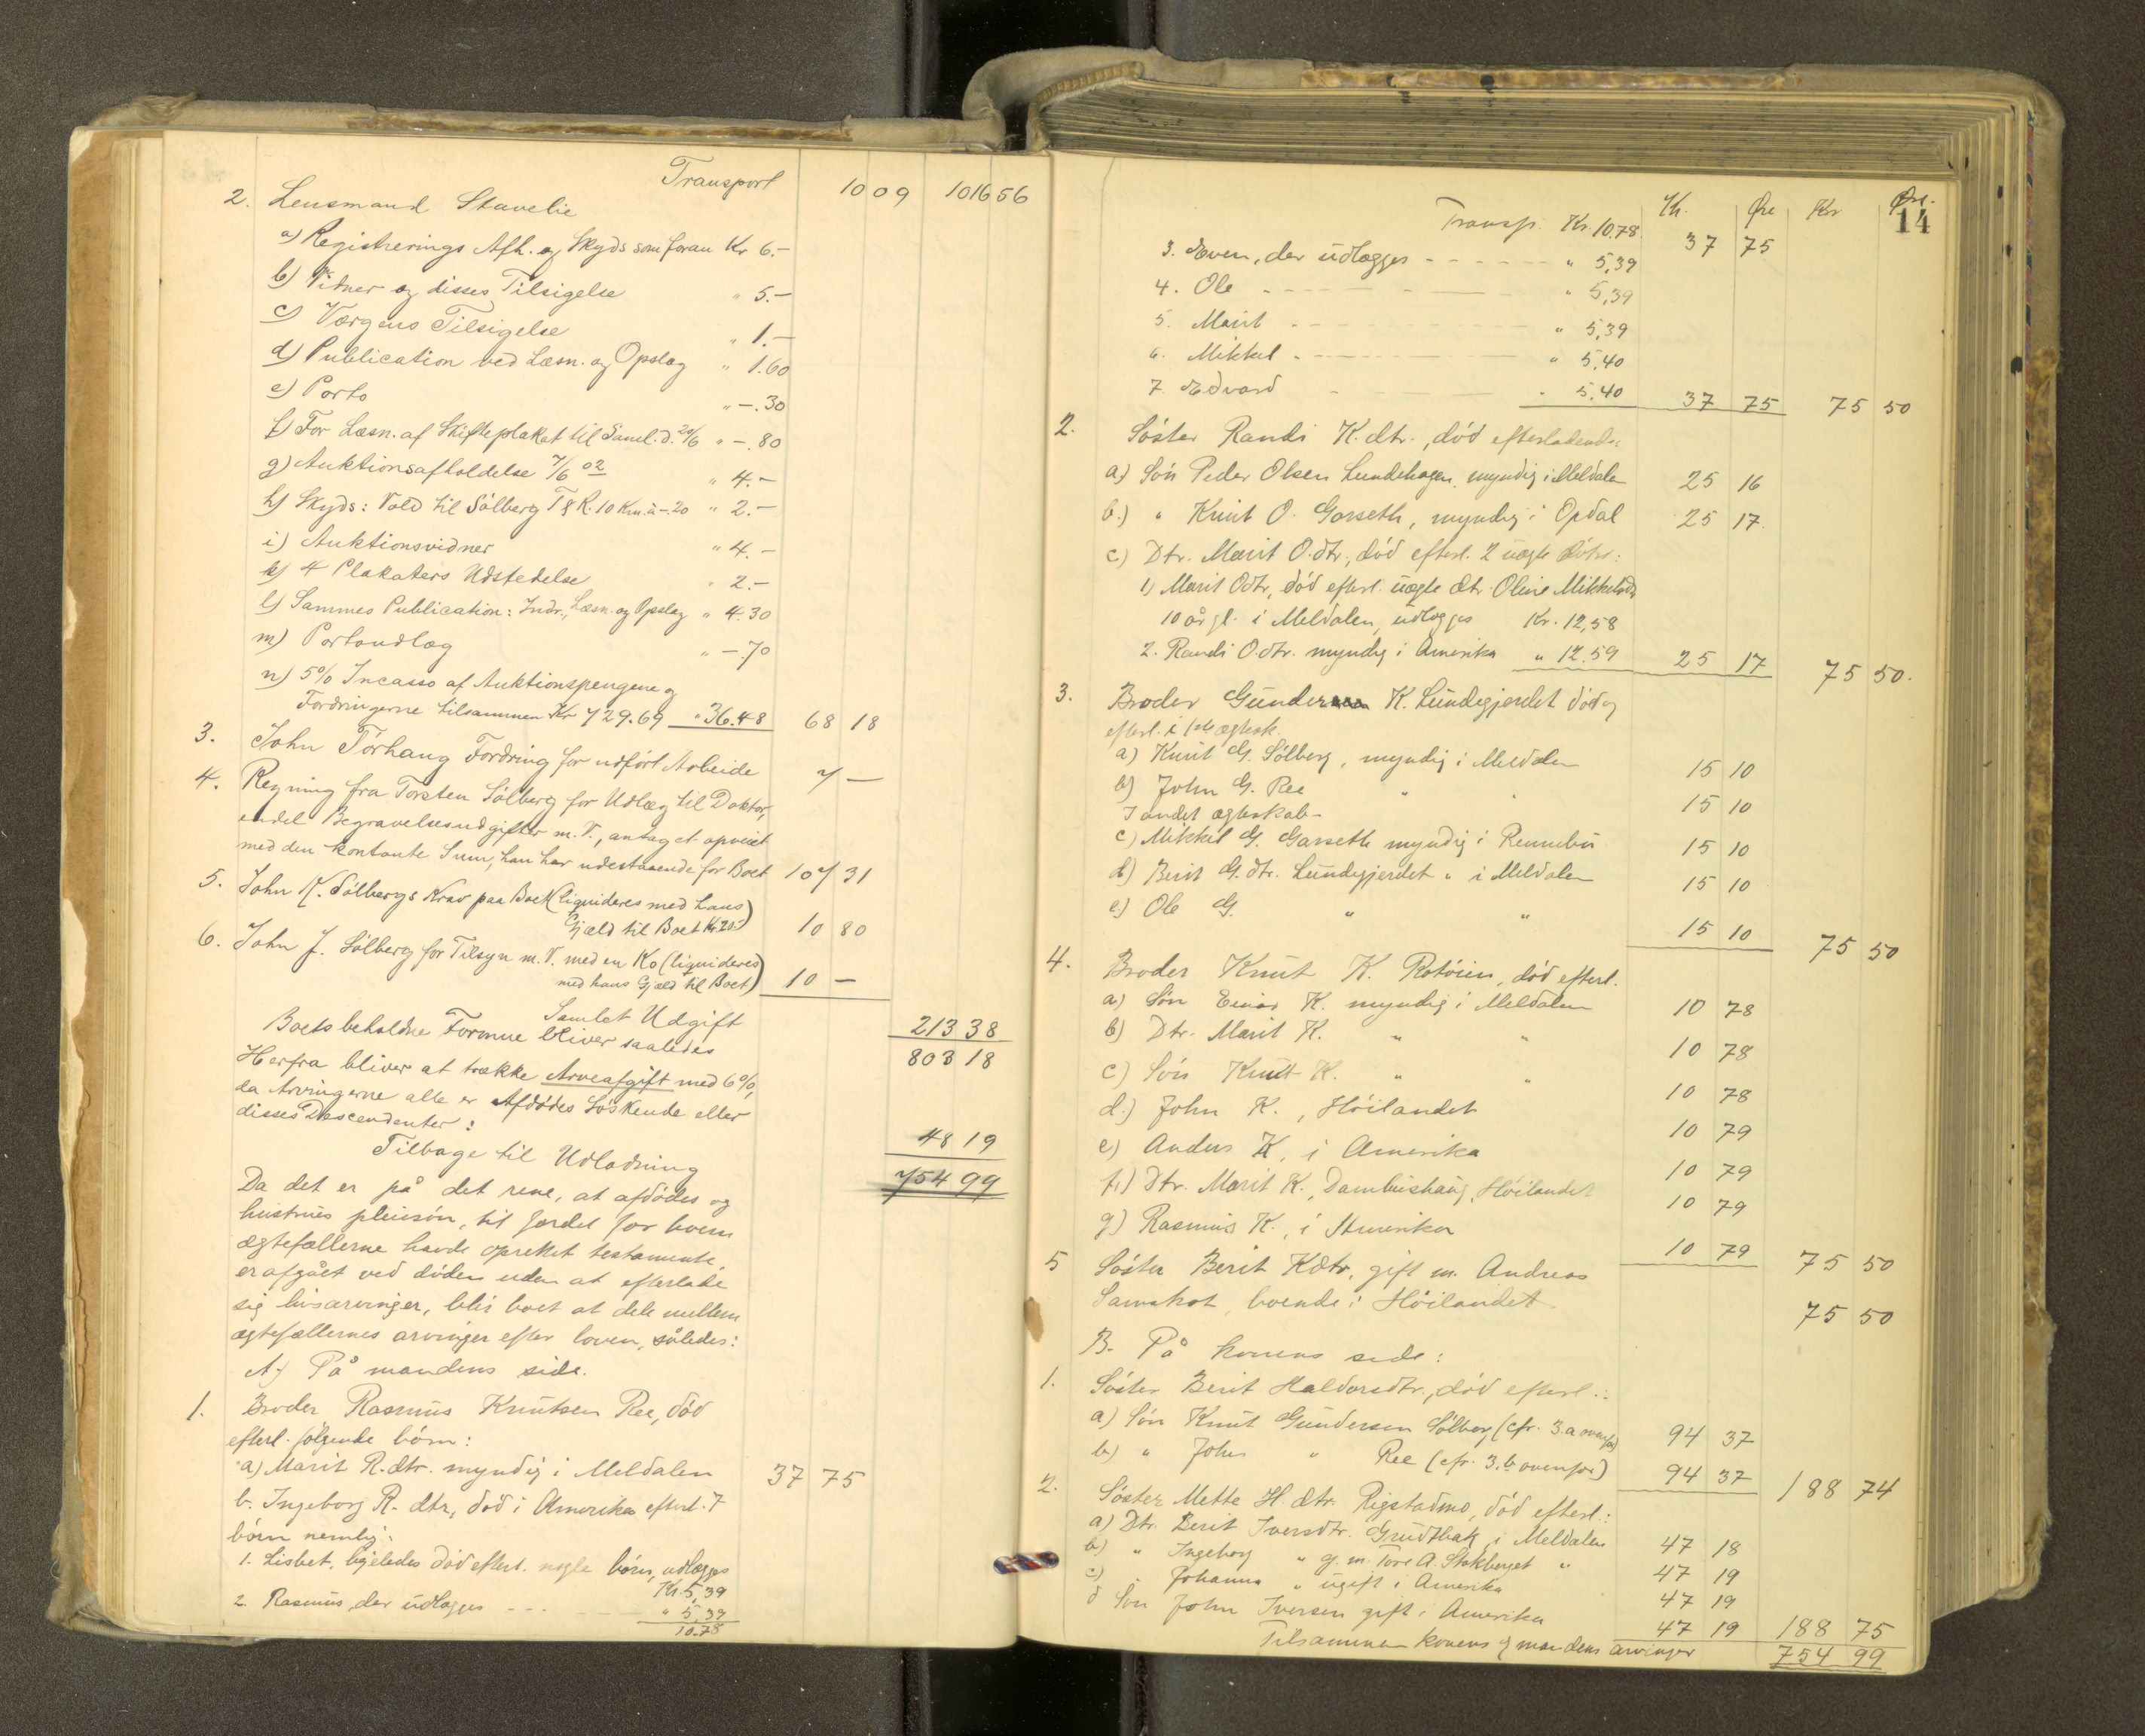 Transport 10 09 1016 56
2. Lensmand Stavelie
a) Registrerings Afh. og Skyds som foran Kr 6.-
b) Vidner og disses Tilsigelse " 5.-
c) Værgens Tilsigelse " 1.-
d) Publication ved Læsn. og Opslag " 1.60
e) Porto " -.30
f) For Læsn. af Skifteplakat til Saml. d. 20/6 " -.80
g) Auktionsafholdelse 7/6 02 " 4.-
h) Skyds: Vold til Sølberg T & R. 10 Km. à -.20 " 2.-
i) Auktionsvidner " 4.-
k) 4 Plakaters Udstedelse " 2.-
l) Sammes Publication: Indr., Læsn. og Opslag " 4.30
m) Portoudlæg " -.70
n) 5% Incasso af Auktionspengene og
Fordringerne tilsammen Kr 729.69 " 36.48 68 18
3. John Torhaug Fordring for udført Arbeide 7 -
4. Regning fra Torsten Sølberg for Udlæg til Doktor,
endel Begravelsesudgifter m. V., antaget opveiet
med den kontante Sum, han har udestaaende for Boet 107 31
5. John K. Sølbergs Krav paa Boet (liquideres med hans
Gjæld til Boet Kr 20.-) 10 80
6. John J. Sølberg for Tilsyn m. V. med en Ko (liquideres
med hans Gjæld til Boet) 10 -
Samlet Udgift 213 38
Boets beholdne Formue bliver saaledes 803 18
Herfra bliver at trække Arveafgift med 6%,
da Arvingerne alle er Afdødes Søskende eller
disses Descendenter: 48 19
Tilbage til Udlodning 754 99
Da det er på det rene, at afdødes og
hustrues pleiesøn, til fordel for hvem
ægtefællerne havde oprettet testamente,
er afgået ved døden uden at efterlade
sig livsarvinger, blir boet at dele mellem
ægtefællernes arvinger efter loven, således:
A) På mandens side.
1. Broder Rasmus Knutsen Ree, død
efterl. følgende børn:
a) Marit R. dtr. myndig i Meldalen 37 75
b. Ingeborg R. dtr, død i Amerika efterl. 7
børn nemlig:
1. Lisbet, ligeledes død efterl. nogle børn, udlægges
Kr. 5,39
2. Rasmus, der udlægges - - - " 5,39
10.78
14
Kr. Øre Kr Øre.
Transp. Kr. 10.78 37 75
3. Even, der udlægges - - - - - - " 5,39
4. Ole - - - - " 5,39
5. Marit - - - - " 5,39
6. Mikkel - - - - " 5,40
7. Edvard - - " 5,40 37 75 75 50
2. Søster Randi K. dtr., død efterladende:
a) Søn Peder Olsen Lundehagen, myndig i Meldalen 25 16
b.) " Knut O. Gorseth, myndig i Opdal 25 17.
c) Dtr. Marit O. dtr., død efterl. 2 uægte døtre:
1) Marit Odtr, død efterl. uægte dtr. Oline Mikkelsdtr
10 år gl. i Meldalen, udlægges Kr. 12,58
2. Randi O. dtr. myndig i Amerika " 12.59 25 17 75 50.
3. Broder Gunder K. Lundegjerdet død og
efterl. i 1ste ægtesk.
a) Knut G. Sølberg, myndig i Meldalen 15 10
b) John G. Ree " " 15 10
I andet ægteskab -
c) Mikkel G. Garseth myndig i Rennebu 15 10
d) Berit G. dtr. Lundegjerdet " i Meldalen 15 10
e) Ole G. " " 15 10 75 50
4. Broder Knut K. Rotøien, død efterl.
a) Søn Einar K. myndig i Meldalen 10 78
b) Dtr. Marit K. " " 10 78
c) Søn Knut K. " " 10 78
d.) John K., Høilandet 10 79
e) Anders K. i Amerika 10 79
f.) Dtr. Marit K., Dambushaug, Høilandet 10 79
g) Rasmus K., i Amerika 10 79 75 50
5 Søster Berit Kdtr, gift m. Andreas
boende i Høilandet 75 50
B. På konens side:
1. Søster Berit Haldorsdtr., død efterl.:
a) Søn Knut Gundersen Sølberg (cfr. 3. a ovenfor) 94 37
b) " John " Ree (cfr. 3. b ovenfor) 94 37 188 74
2. Søster Mette H. dtr. Rigstadmo, død efterl.:
a) Dtr. Berit Iversdtr. Grudtbak i Meldalen 47 18
b) " Ingeborg " g. m. Tore A. Stokberget " 47 19
c) " Johanna " ugift i Amerika 47 19
d Søn John Iversen gift i Amerika 47 19 188 75
Tilsammen konens og mandens arvinger 754 99